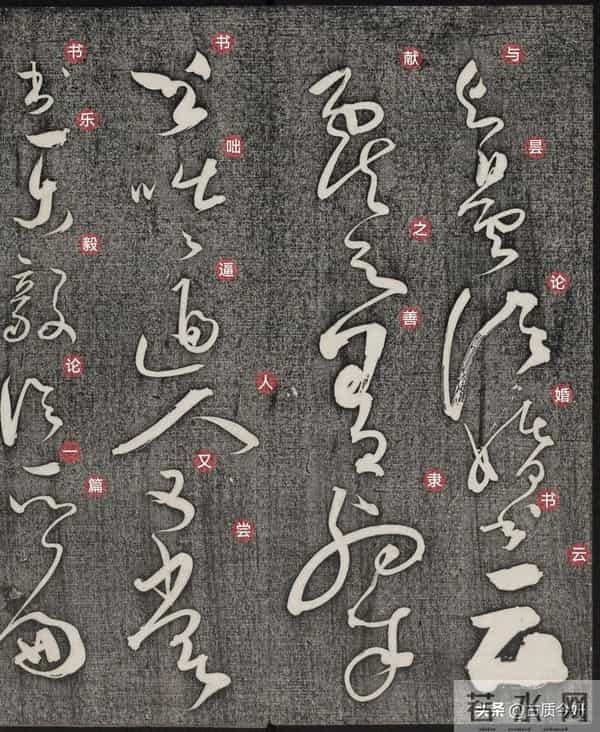 与昙论婚书云
献之善隶
书咄逼人又尝
书乐毅论一篇
头条 @古质今妍